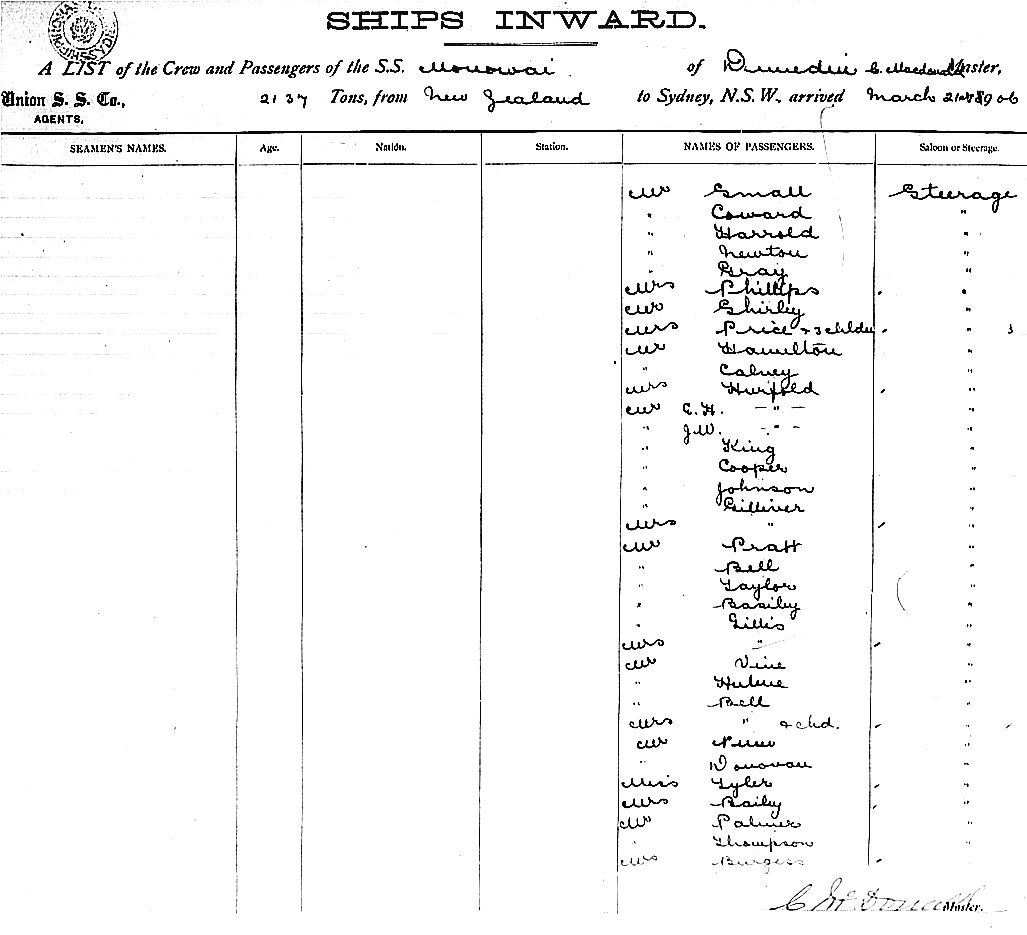 SHIPS INWARD.
A LIST of the Crew and Passengers of the S.S. Monowai of Dunedin C. Macdonald Master,
Union S. S. Co., 2137 Tons, from New Zealand to Sydney, N.S.W. arrived March 21st 1890
AGENTS,
SEAMEN'S NAMES. Age. Nation. Station. NAMES OF PASSENGERS. Saloon or Steerage.
Mr Small Steerage
" Coward "
" Harrold "
" Newton "
" Gray "
Mrs Phillips "
Mr Shirley "
Mrs Price & 3 childn " 3
Mr Hamilton "
" Calney "
Mrs Hurfold "
Mr C. H. — " — "
" J. W. — " — "
" King "
" Cooper "
" Johnson "
" Gilliver "
Mrs " "
Mr Pratt "
" Bell "
" Taylor "
" Basiley "
" Gillis "
Mrs " "
Mr Vine "
" Hulme "
" Bell "
Mrs " & chd. "
Mr "
" Donovan "
Miss Tyler "
Mrs Baily "
Mr Palmer "
" Thompson "
Mrs Burgess "
C McDonald Master.